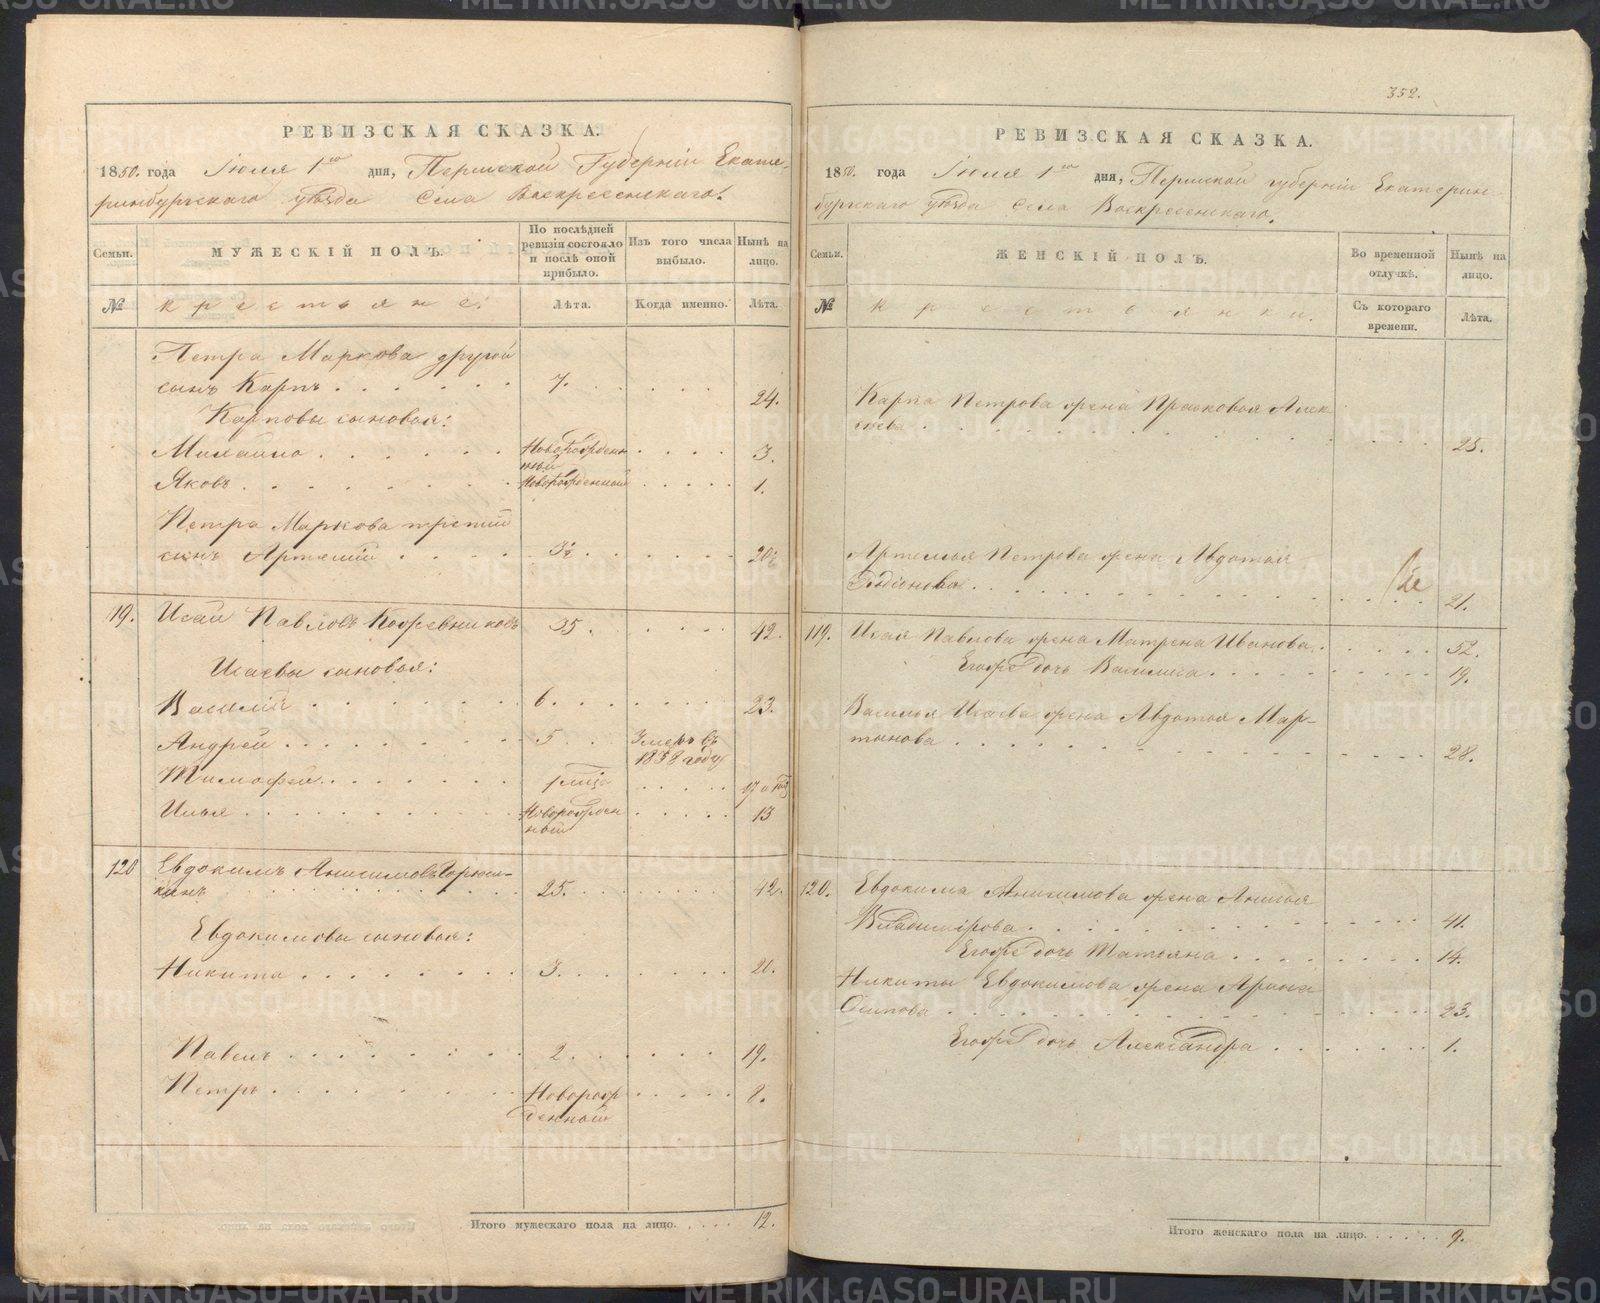 РЕВИЗСКАЯ СКАЗКА.
1850. года Іюля 1го дня, Пермской Губерніи Екате-
ринбургскаго уѣзда Села Воскресенскаго.
Семьи.
МУЖЕСКІЙ ПОЛЪ.
По послѣдней ревизіи состояло и послѣ оной прибыло.
Изъ того числа выбыло.
Нынѣ на лицо.
№
крестьяне:
Лѣта.
Когда именно.
Лѣта.
Петра Маркова другой
сынъ Карпъ 7. 24.
Карповы сыновья:
Михайло Новорожден-
ный 3.
Яковъ Новорожденный 1.
Петра Маркова третий
сынъ Артемій 3½ 20½
19. Исаи Павловъ Кожевниковъ 35. 42.
Исаевы сыновья:
Василій 6. 23.
Андрей 5 Умеръ въ
1838 году
Тимофей 17 и
Илья Новорожден
ный 13
120 Евдокимъ Анисимовъ
кинъ 25. 42.
Евдокимовы сыновья:
Никита 3. 20.
Павелъ 2. 19.
Петръ Новорож
денный 8.
Итого мужескаго пола на лицо. 12.
352.
РЕВИЗСКАЯ СКАЗКА.
1850. года Іюля 1го дня, Пермской губерніи Екатерин-
бургскаго уѣзда Села Воскресенскаго.
Семьи.
ЖЕНСКІЙ ПОЛЪ.
Во временной отлучкѣ.
Нынѣ на лицо.
№
крестьянки.
Съ котораго времени.
Лѣта.
Карпа Петрова жена Прасковья Алек
сѣева 25.
Артемья Петрова жена Авдотья
Родіонова 21.
119. Исая Павлова жена Матрена Иванова 52.
Егожъ дочь Василиса 19.
Василья Исаева жена Авдотья Мар-
тынова 28.
120. Евдокима Анисимова жена Анисья
Владимірова 41.
Егожъ дочь Татьяна 14.
Никиты Евдокимова жена Арина
Осипова 23.
Егожъ дочь Александра 1.
Итого женскаго пола на лицо. 9.
METRIKI.GASO-URAL.RU